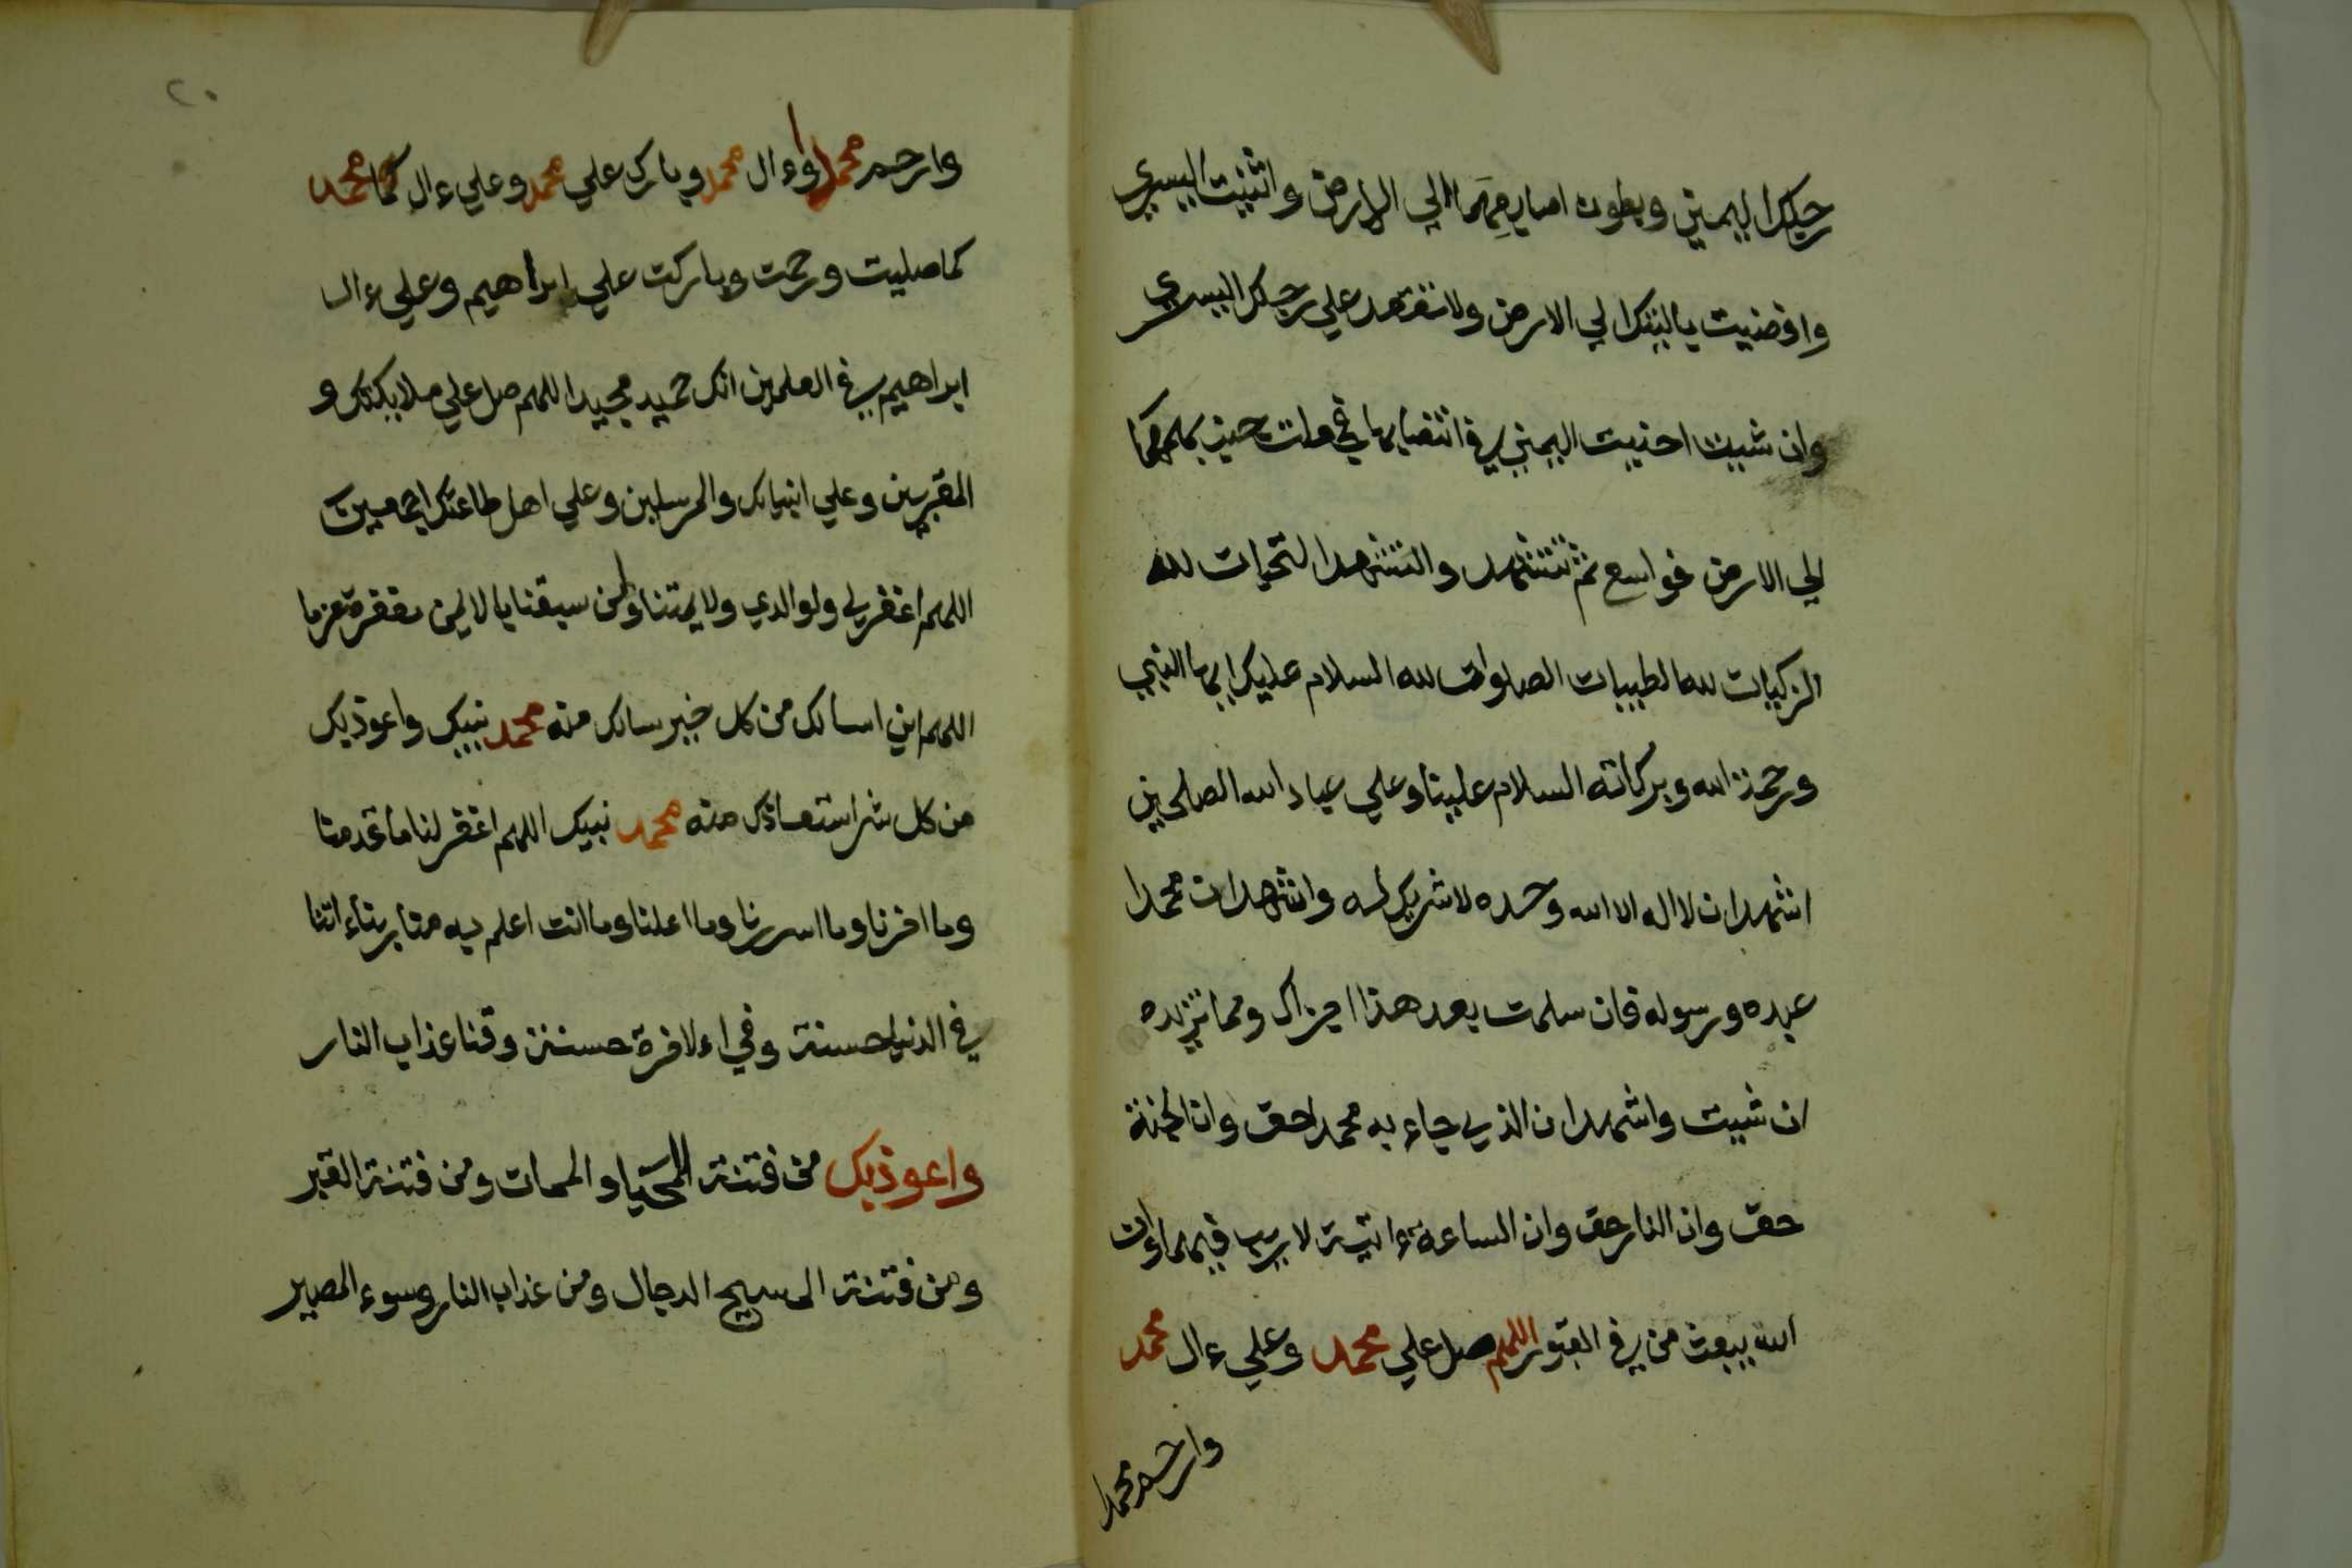 رجلك اليمني وبطون اصابعهما الي الارض واثنيت اليسري
وافضيت باليتك الي الارض ولا تقعد علي رجلك اليسري
وان شيت احنيت اليمني في انتصابها فجعلت جنب بهمهما
الي الارض فواسع ثم تتشهد والتشهد التحيات لله
الزكيات لله الطيبات الصلوات لله السلام عليك ايها النبي
ورحمة الله وبركاته السلام علينا وعلي عباد الله الصلحين
اشهد ان لا اله الا الله وحده لا شريك له واشهد ان محمدا
عبده ورسوله فان سلمت بعد هذا اجزاك ومما تزيده
ان شيت واشهد ان الذي جاء به محمد احق وان الجنة
حق وان النار حق وان الساعة ءاتية لا ريب فيها وان
الله يبعث من في القبور اللهم صل علي محمد وعلي ءال محمد
وارحم محمدا
٢٠
وارحم محمدا وءال محمد وبارك علي محمد وعلي ءال محمد كما
كما صليت ورحمت وباركت علي ابراهيم وعلي ءال
ابراهيم في العلمين انك حميد مجيد اللهم صل علي ملايكتك و
المقربين وعلي انبيائك والمرسلين وعلي اهل طاعتك اجمعين
اللهم اغفر لي ولوالدي ولايمتنا ولمن سبقنا بالايمن مغفرة عزما
اللهم اني اسالك من كل خير سالك منه محمد نبيك واعوذ بك
من كل شر استعاذك منه محمد نبيك اللهم اغفر لنا ما قدمنا
وما اخرنا وما اسررنا وما اعلنا وما انت اعلم به منا ربنا ءاتنا
في الدنيا حسنة وفي اءلاخرة حسنة وقنا عذاب النار
واعوذ بك من فتنة المحيا والممات ومن فتنة القبر
ومن فتنة المسيح الدجال ومن عذاب النار وسوء المصير